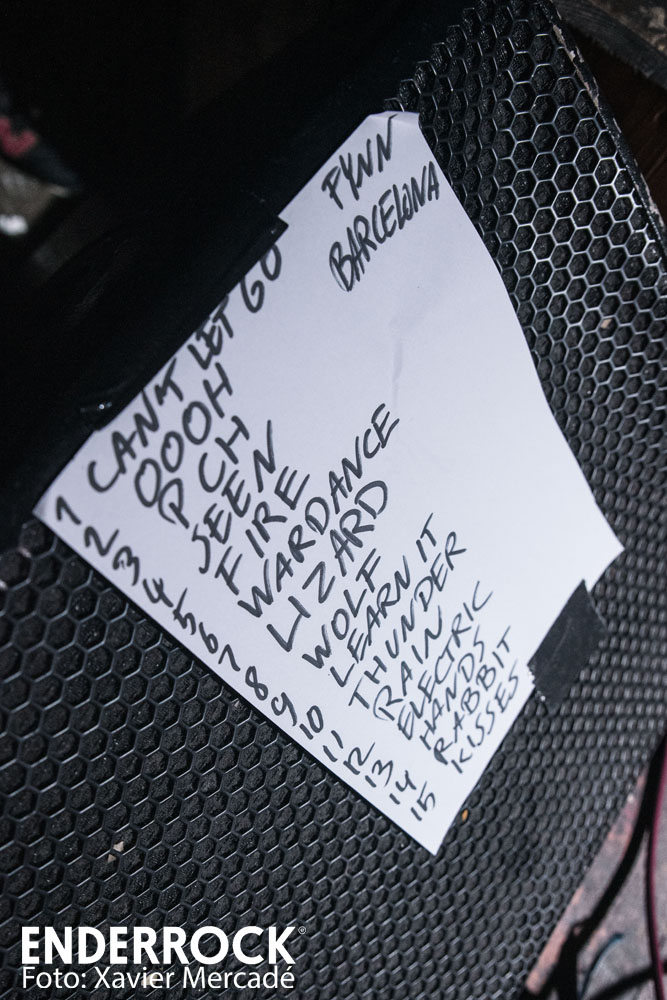 PYNN
BARCELONA
1 CAN'T LET GO
2 OOOH
3 PCH
4 SEEN
5 FIRE
6 WARDANCE
7 LIZARD
8 WOLF
9 LEARN IT
10 THUNDER
11 RAIN
12 ELECTRIC
13 HANDS
14 RABBIT
15 KISSES
ENDERROCK®
Foto: Xavier Mercadé